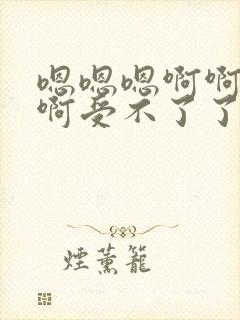 嗯嗯嗯啊啊
啊受不了了
煙薰籠